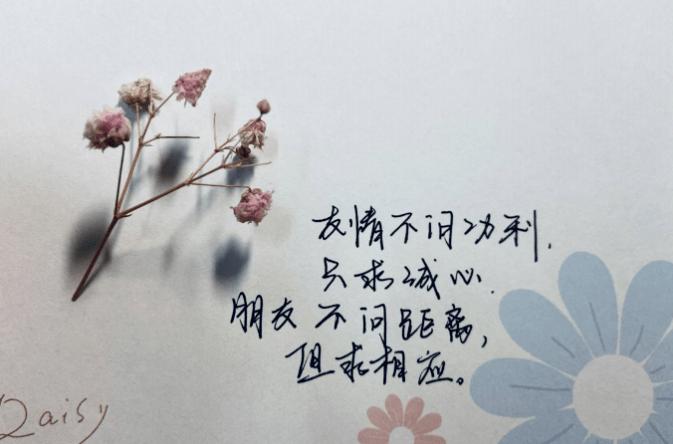 友情不问功利，
只求诚心。
朋友不问距离，
但求相应。
Daisy